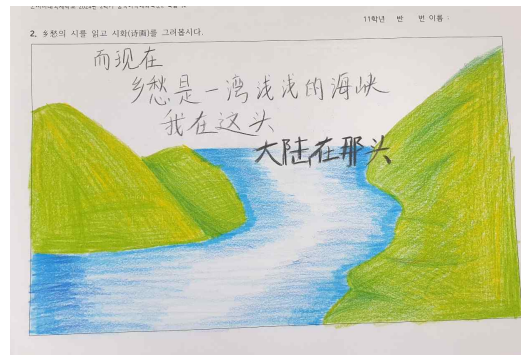 11학년 반 번 이름 :
2. 乡愁의 시를 읽고 시화(诗画)를 그려봅시다.
而现在
乡愁是一湾浅浅的海峡
我在这头
大陆在那头